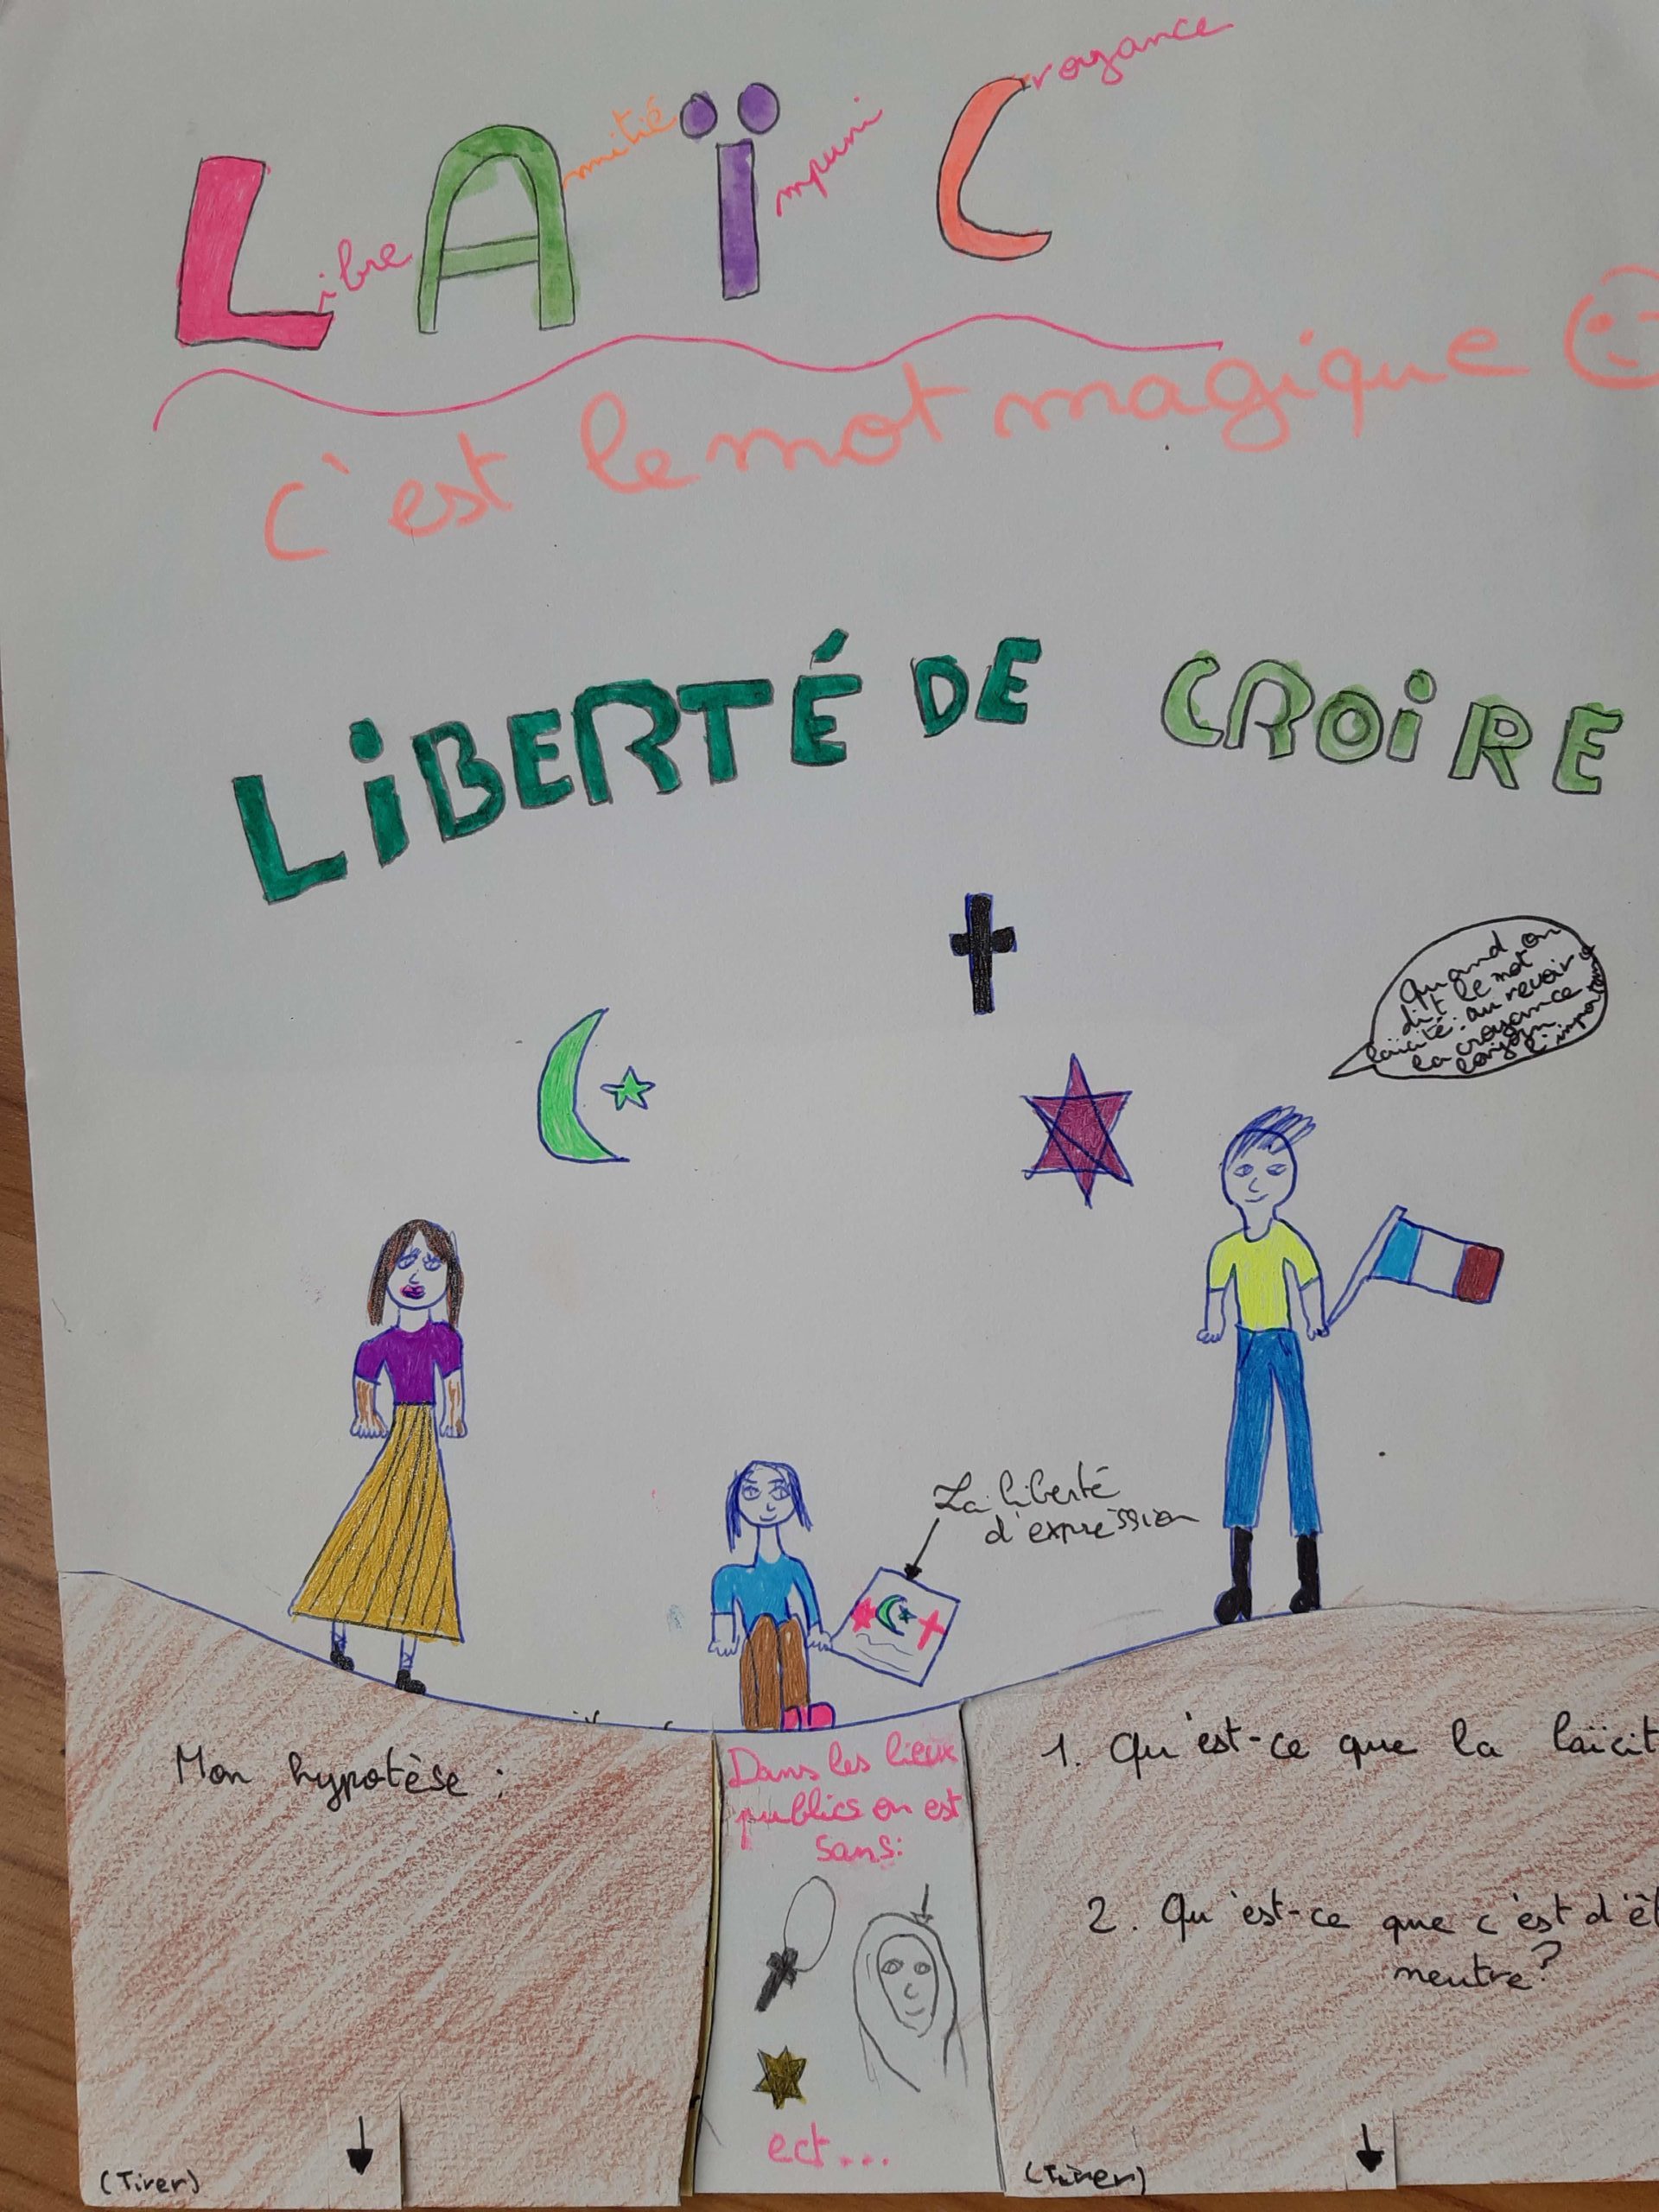 LAÏC
Libre
Amitié
Impuni
Croyance
c'est le mot magique
LiBERTÉ DE CROiRE
Quand on
dit le mot
laïcité: au revoir
la croyance
La liberté
d'expression
Mon hypotèse :
Dans les lieux
publics on est
sans:
ect...
1. Qu'est-ce que la laïcit
2. Qu'est-ce que c'est d'êt
neutre?
(Tirer)
(Tirer)